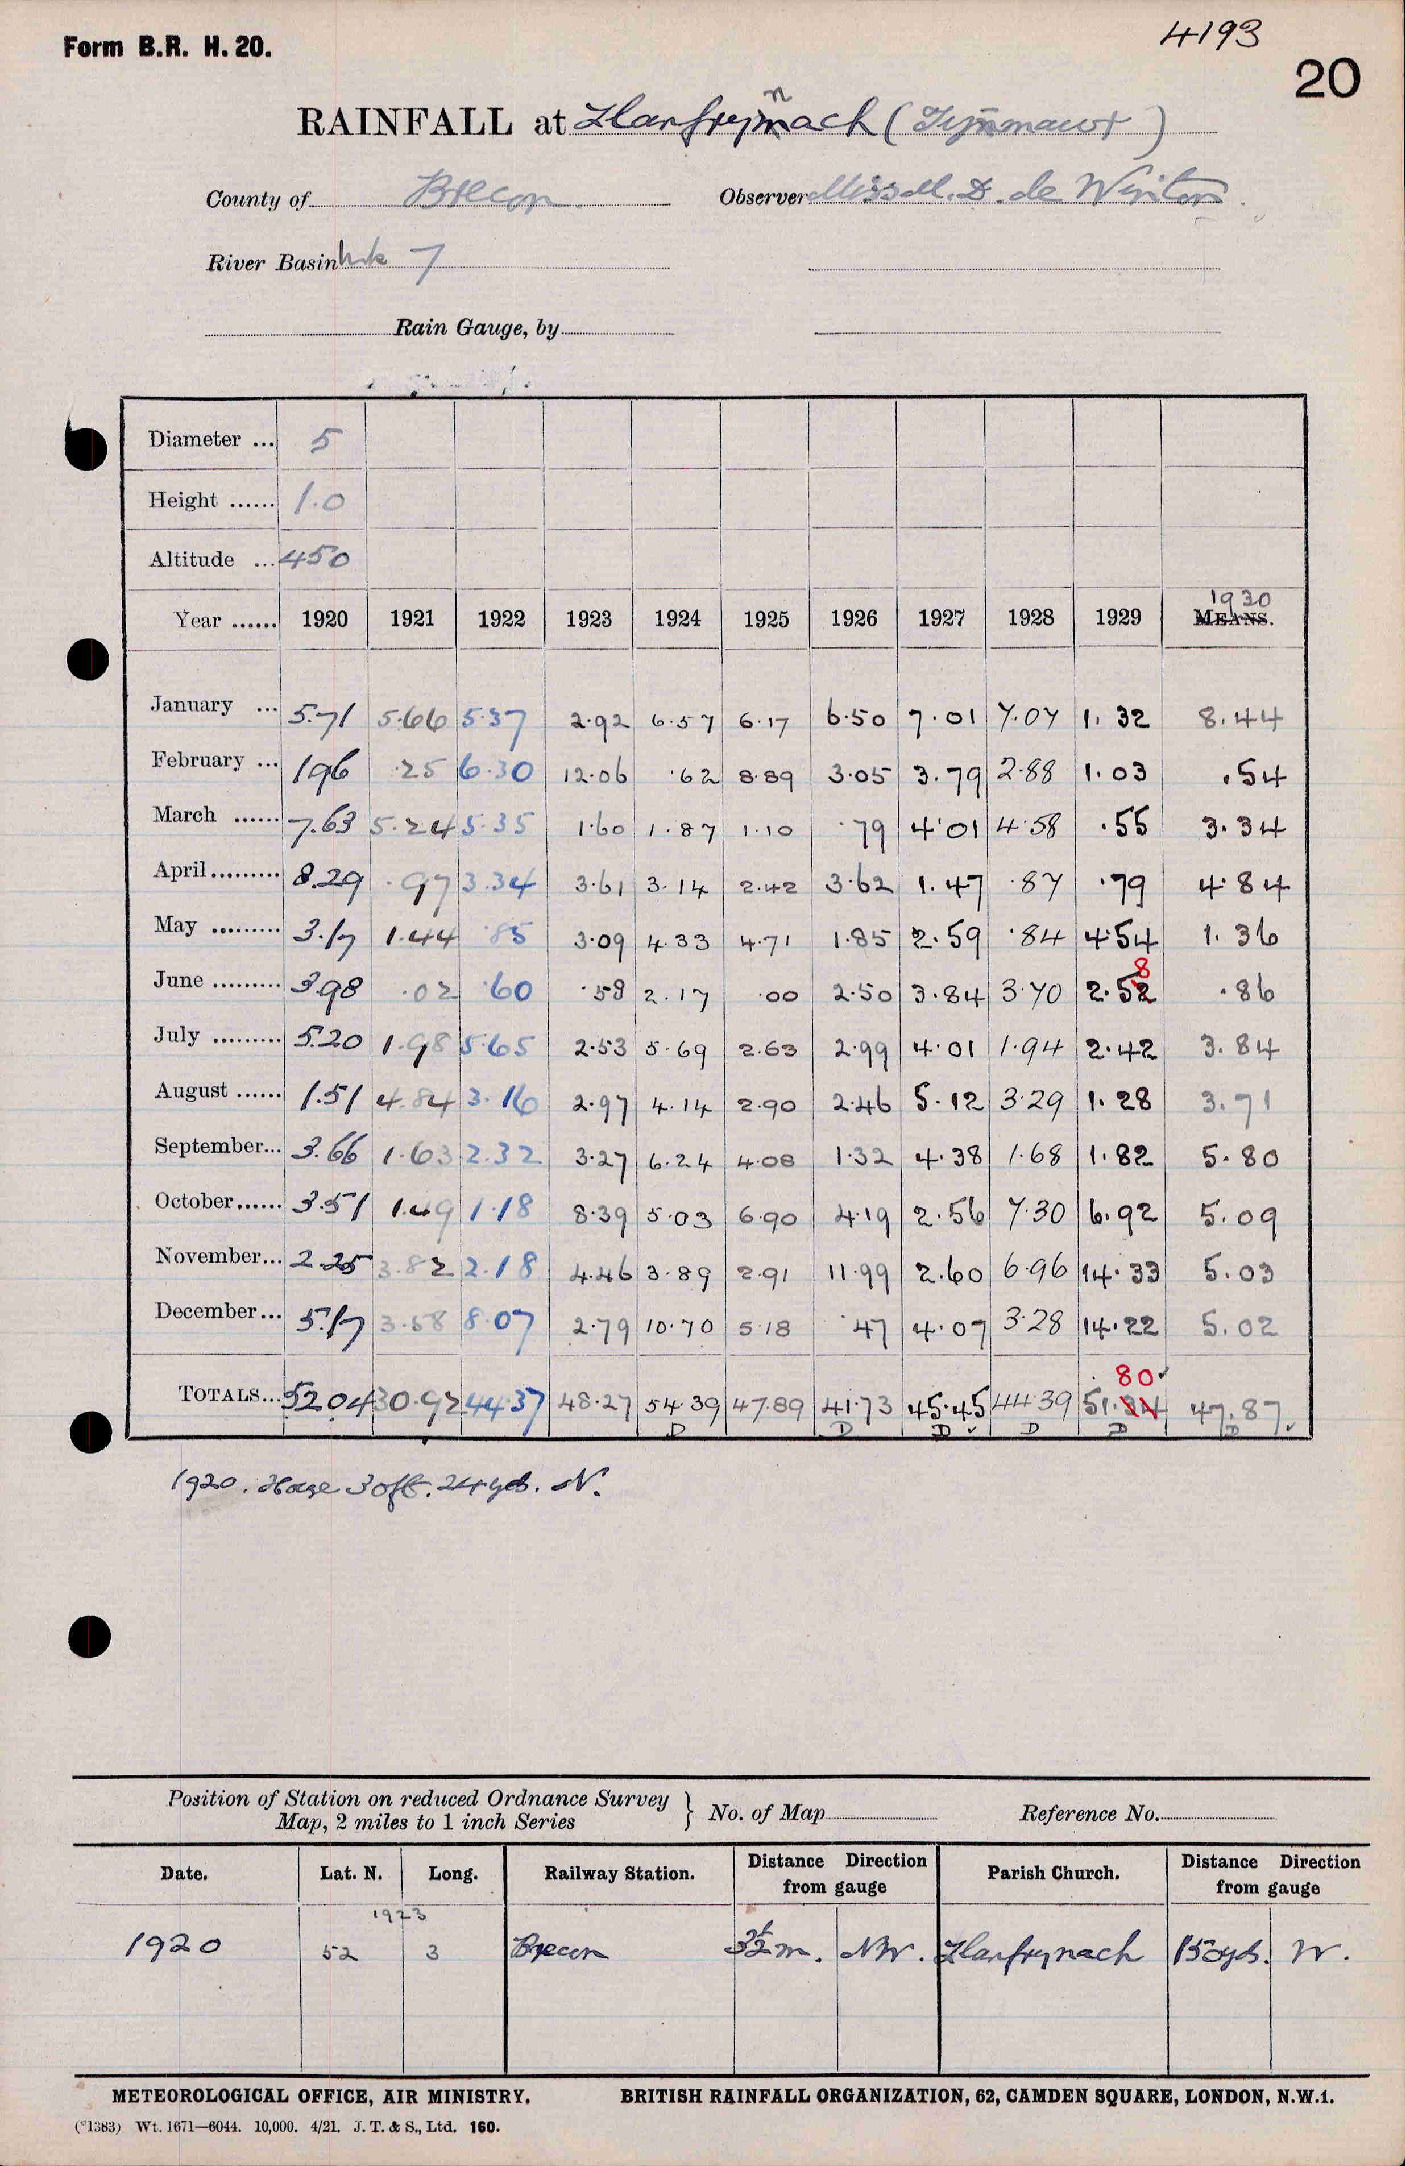 4193
Form B.R. H. 20.
20
RAINFALL at Llanfrynach (Tynmawr)
County of Brecon Observer Miss M. D. de Winton
River Basin 7
Rain Gauge, by
Diameter ... 5
Height ...... 1.0
Altitude ... 450
1930
Year ...... 1920 1921 1922 1923 1924 1925 1926 1927 1928 1929 MEANS.
January ... 5.71 5.66 5.37 2.92 6.57 6.17 6.50 7.01 7.07 1.32 8.44
February ... 196 .25 6.30 12.06 .62 8.89 3.05 3.79 2.88 1.03 .54
March ...... 7.63 5.24 5.35 1.60 1.87 1.10 .79 4.01 4.58 .55 3.34
April......... 8.29 .97 3.34 3.61 3.14 2.42 3.62 1.47 .87 .79 4.84
May ......... 3.17 1.44 .85 3.09 4.33 4.71 1.85 2.59 .84 4.54 1.36
8
June ......... 3.98 .02 .60 .58 2.17 .00 2.50 3.84 3.70 2.52 .86
July ......... 5.20 1.98 5.65 2.53 5.69 2.63 2.99 4.01 1.94 2.42 3.84
August ...... 1.51 4.84 3.16 2.97 4.14 2.90 2.46 5.12 3.29 1.28 3.71
September... 3.66 1.63 2.32 3.27 6.24 4.08 1.32 4.38 1.68 1.82 5.80
October...... 3.51 1.49 1.18 8.39 5.03 6.90 4.19 2.56 7.30 6.92 5.09
November... 2.25 3.82 2.18 4.46 3.89 2.91 11.99 2.60 6.96 14.33 5.03
December... 5.17 3.58 8.07 2.79 10.70 5.18 .47 4.07 3.28 14.22 5.02
80
TOTALS... 52.04 30.92 44.37 48.27 54.39 47.89 41.73 45.45 44.39 51. 47.87
D D D D D D
1920. Hose 30ft. 24yds. N.
Position of Station on reduced Ordnance Survey Map, 2 miles to 1 inch Series } No. of Map Reference No.
Date. Lat. N. Long. Railway Station. Distance Direction from gauge Parish Church. Distance Direction from gauge
1923
1920 52 3 Brecon 3½m. NW. Llanfrynach 150yds. W.
METEOROLOGICAL OFFICE, AIR MINISTRY. BRITISH RAINFALL ORGANIZATION, 62, CAMDEN SQUARE, LONDON, N.W.1.
(*1383) Wt. 1671—6044. 10,000. 4/21. J. T. & S., Ltd. 160.